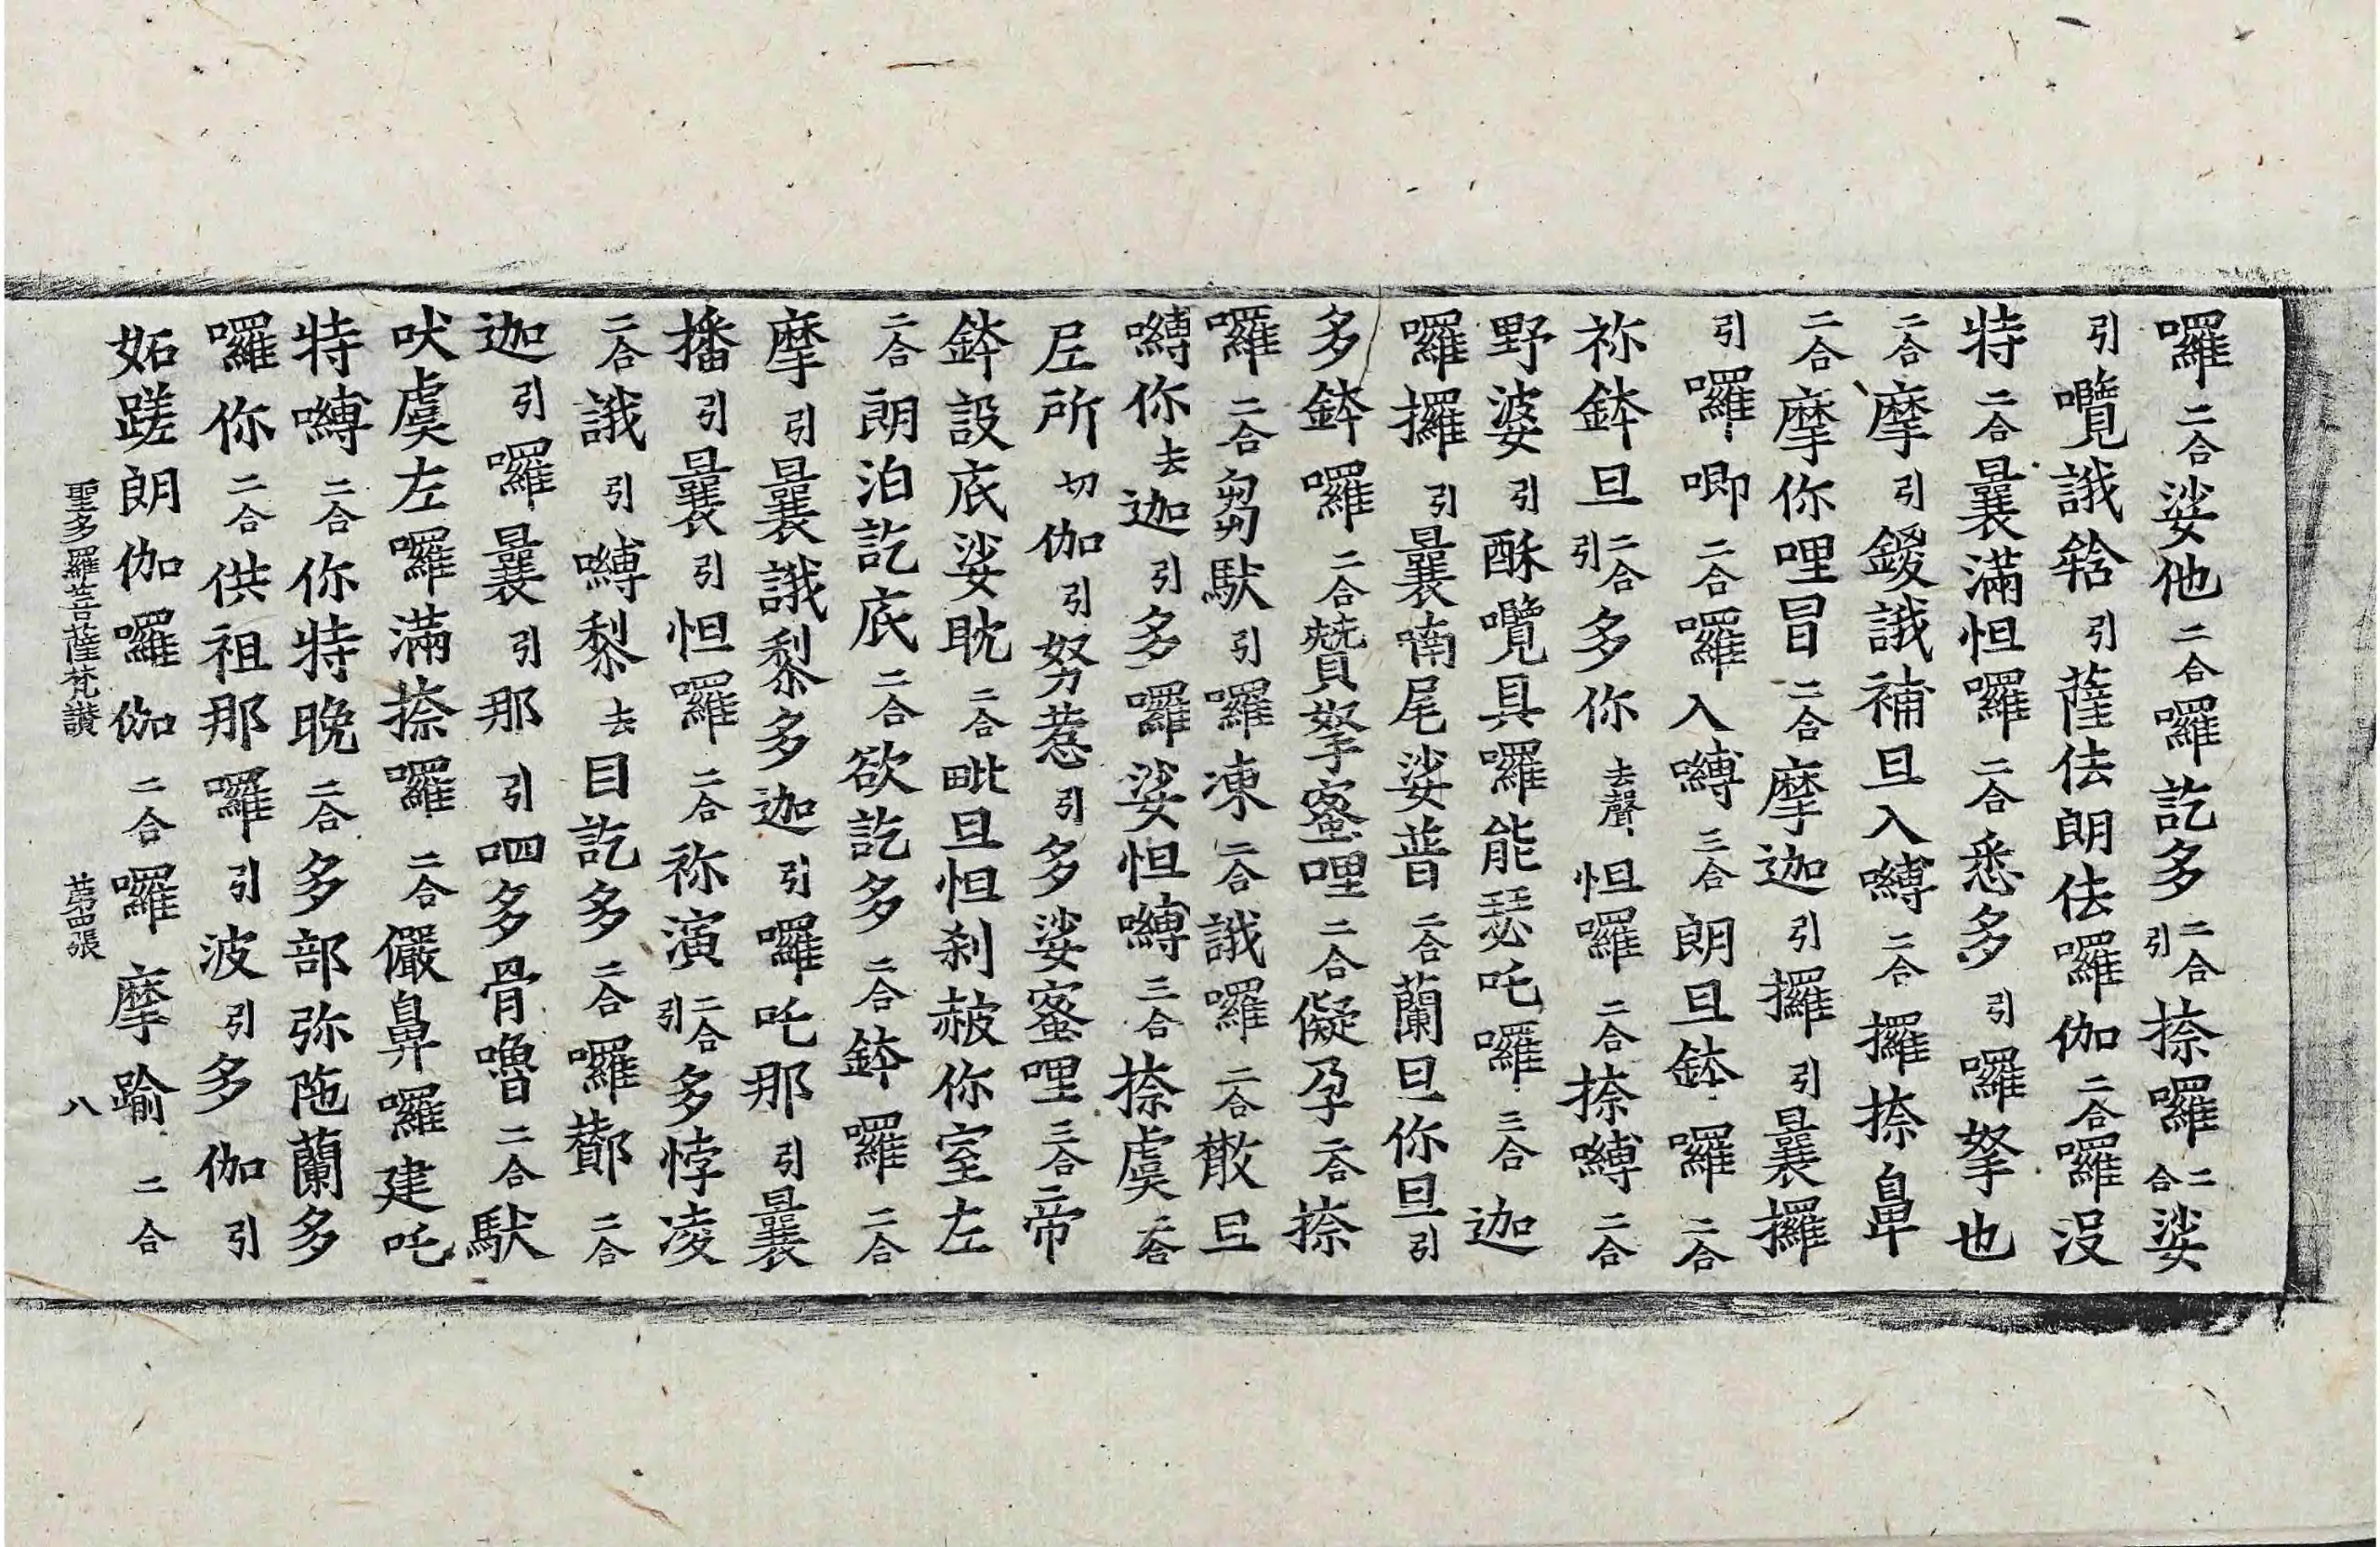 囉二合娑他二合囉訖多二合引捺囉二合娑
引嚂誐𩐎引薩佉朗佉囉伽二合囉没
特二合曩滿怛囉二合悉多引囉拏也
二合摩引鍐誐補旦入嚩二合攞捺鼻
二合摩你哩冒二合摩迦引攞引曩攞
引囉唧二合囉入嚩三合朗旦鉢囉二合
祢鉢旦二合引多你去聲怛囉二合捺嚩二合
野婆引酥嚂具囉能瑟吒囉三合迦
囉攞引曩喃尾娑普二合蘭旦你旦引
多鉢囉二合贊拏蜜哩二合儗孕二合捺
囉二合芻馱引囉凍二合誐囉二合散旦
嚩你去迦引多囉娑怛嚩三合捺虞二合
𡰱所切伽引努惹引多娑蜜哩三合帝
鉢設底娑眈二合毗旦怛刹赧你室左
二合朗泊訖底二合欲訖多二合鉢囉二合
摩引曩誐黎多迦引囉吒那引曩
播引曩引怛囉二合祢演二合引多悖凌
二合誐引嚩黎去目訖多二合囉酇二合
迦引囉曩引那引呬多骨嚕二合馱
吠虞左囉滿捺囉二合儼鼻囉建吒
特嚩二合你特晚二合多部弥陁蘭多
囉你二合供祖那囉引波引多伽引
妬蹉朗伽囉伽二合囉摩踰二合
聖多羅菩薩梵讚 苐四張 八